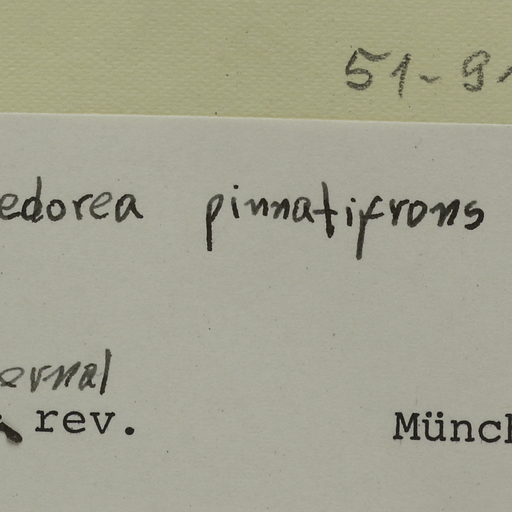 51-9
edorea pinnatifrons
ernal
rev. Münch